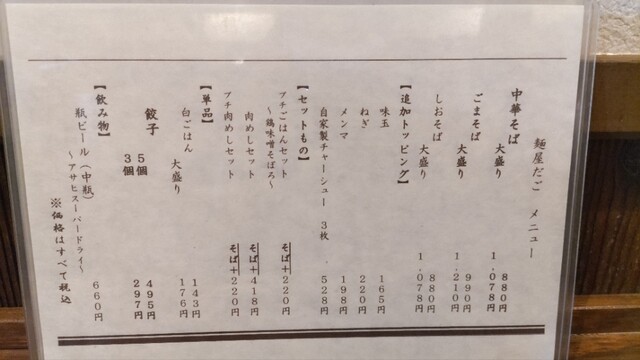 麺屋だご　メニュー
中華そば　880円
大盛り　1,078円
ごまそば　990円
大盛り　1,210円
しおそば　880円
大盛り　1,078円
【追加トッピング】
味玉　165円
ねぎ　220円
メンマ　198円
自家製チャーシュー　3枚　528円
【セットもの】
プチごはんセット　そば+220円
～鶏味噌そぼろ～
肉めしセット　そば+418円
プチ肉めしセット　そば+220円
【単品】
白ごはん　143円
大盛り　176円
餃子　5個　495円
3個　297円
【飲み物】
瓶ビール（中瓶）　660円
～アサヒスーパードライ～
※価格はすべて税込